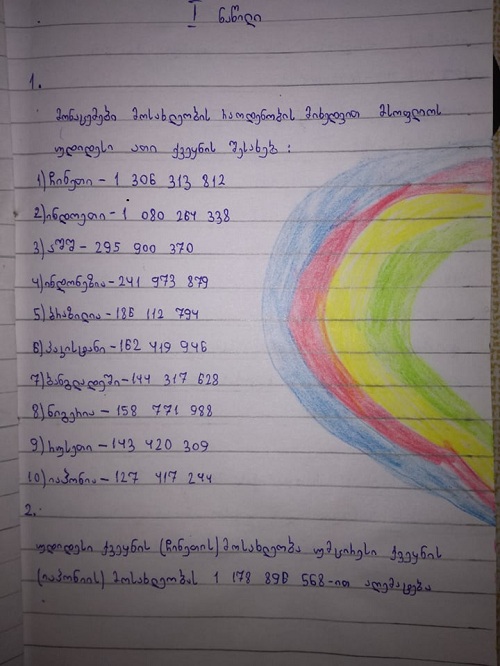 I ნაწილი
1.
მონაცემები მოსახლეობის რაოდენობის მიხედვით მსოფლიოს
უდიდესი ათი ქვეყნის შესახებ :
1) ჩინეთი - 1 306 313 812
2) ინდოეთი - 1 080 264 338
3) აშშ - 295 900 370
4) ინდონეზია - 241 973 879
5) ბრაზილია - 186 112 794
6) პაკისტანი - 162 419 946
7) ბანგლადეში - 144 317 628
8) ნიგერია - 158 771 988
9) რუსეთი - 143 420 309
10) იაპონია - 127 417 244
2.
უდიდესი ქვეყნის (ჩინეთის) მოსახლეობა უმცირესი ქვეყნის
(იაპონიის) მოსახლეობას 1 178 896 568-ით აღემატება